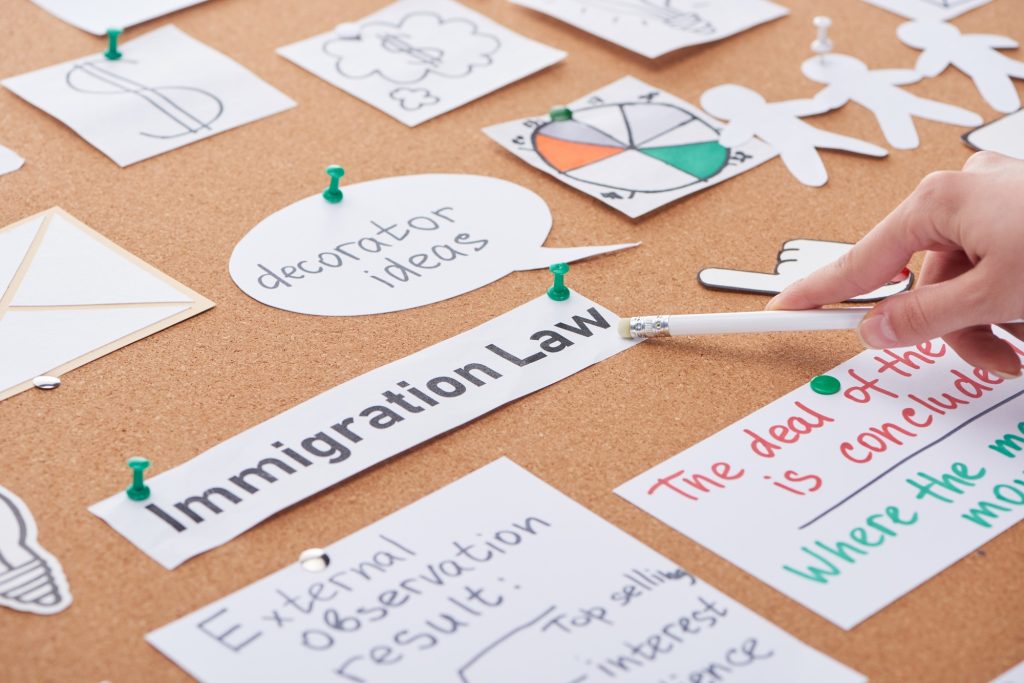 decorator
ideas
Immigration Law
The deal of the
is concluded
Where the
External
observation
result:
Top selling
interest